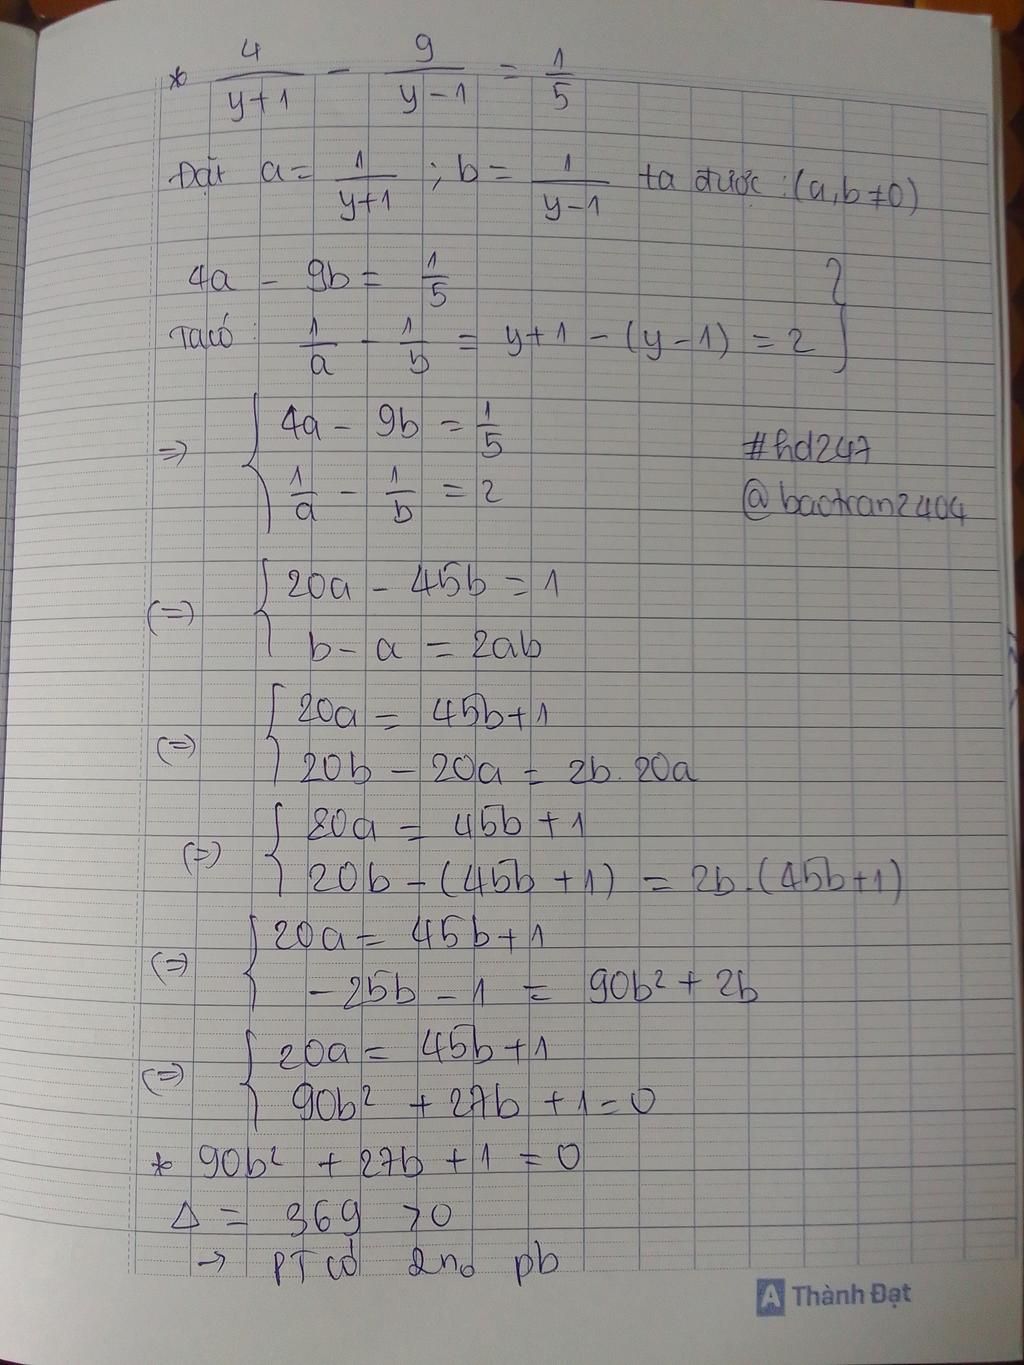 * 4/(y+1) - 9/(y-1) = 1/5
Đặt a = 1/(y+1) ; b = 1/(y-1) ta được : (a,b≠0)
4a - 9b = 1/5 }
Ta có : 1/a - 1/b = y+1 - (y-1) = 2
=> { 4a - 9b = 1/5
1/a - 1/b = 2
#hd247
@baotran2404
(=) { 20a - 45b = 1
b - a = 2ab
(=) { 20a = 45b+1
20b - 20a = 2b.20a
(=) { 20a = 45b+1
20b - (45b+1) = 2b.(45b+1)
(=) { 20a = 45b+1
-25b - 1 = 90b² + 2b
(=) { 20a = 45b+1
90b² + 27b + 1 = 0
* 90b² + 27b + 1 = 0
Δ = 369 > 0
→ PT có 2no pb
A Thành Đạt